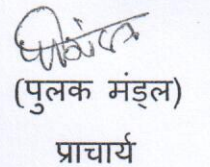 (पुलक मंड्ल)
प्राचार्य